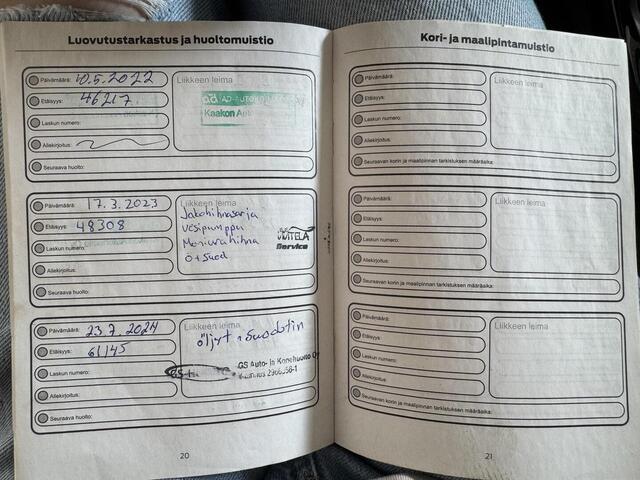 Luovutustarkastus ja huoltomuistio
Päivämäärä: 10.5.2022
Liikkeen leima
Etäisyys: 46217
Laskun numero:
Kaakon
Allekirjoitus:
Seuraava huolto:
Päivämäärä: 17.3.2023
Liikkeen leima
Etäisyys: 48308
Jakohihnasarja
Vesipumppu
Laskun numero:
Moniurahihna
Service
Allekirjoitus:
Ö+Suod
Seuraava huolto:
Päivämäärä: 23.7.2024
Liikkeen leima
Etäisyys: 61145
öljyt + Suodatin
Laskun numero:
GS Auto- ja Konehuolto Oy
Allekirjoitus:
Seuraava huolto:
20
Kori- ja maalipintamuistio
Päivämäärä:
Liikkeen leima
Etäisyys:
Laskun numero:
Allekirjoitus:
Seuraavan korin ja maalipinnan tarkistuksen määräaika:
Päivämäärä:
Liikkeen leima
Etäisyys:
Laskun numero:
Allekirjoitus:
Seuraavan korin ja maalipinnan tarkistuksen määräaika:
Päivämäärä:
Liikkeen leima
Etäisyys:
Laskun numero:
Allekirjoitus:
Seuraavan korin ja maalipinnan tarkistuksen määräaika:
21